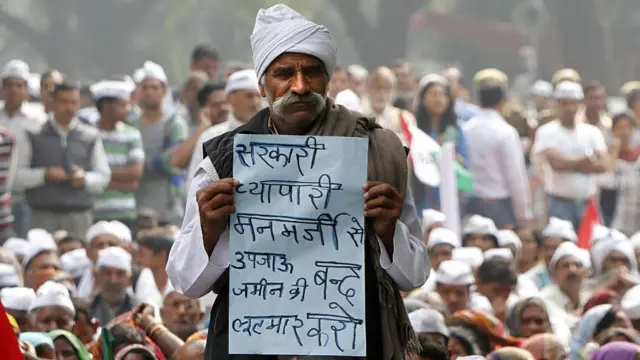 सरकारी
व्यापारी
मनमर्जी से
उपजाऊ
जमीन की बन्द
लूटमार करो